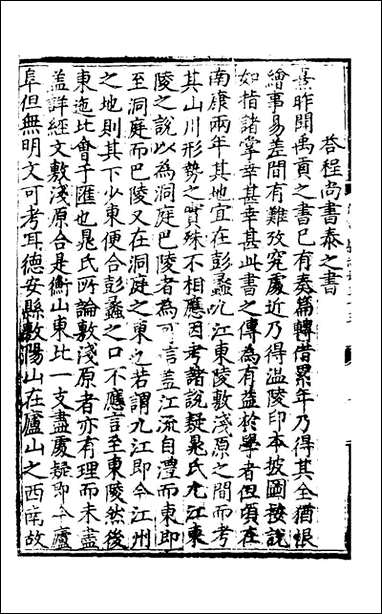 荅程尚書泰之書
熹昨聞禹貢之書已有奏篇轉借累年乃得其全猶恨
繪事易差間有難攷究處近乃得温陵印本披圖按說
如指諸掌幸甚幸甚此書之傳為有益於學者但頃在
南康兩年其地宜在彭蠡九江東陵敷淺原之間而考
其山川形勢之實殊不相應因考諸說疑晁氏九江東
陵之說以為洞庭巴陵者為可信盖江流自澧而東即
至洞庭而巴陵又在洞庭之東也若謂九江即今江州
之地則其下少東便合彭蠡之口不應言至東陵然後
東迤北會于匯也晁氏所論敷淺原者亦有理而未盡
盖詳經文敷淺原合是衡山東北一支盡處疑即今廬
阜但無明文可考耳德安縣敷陽山在廬山之西南故